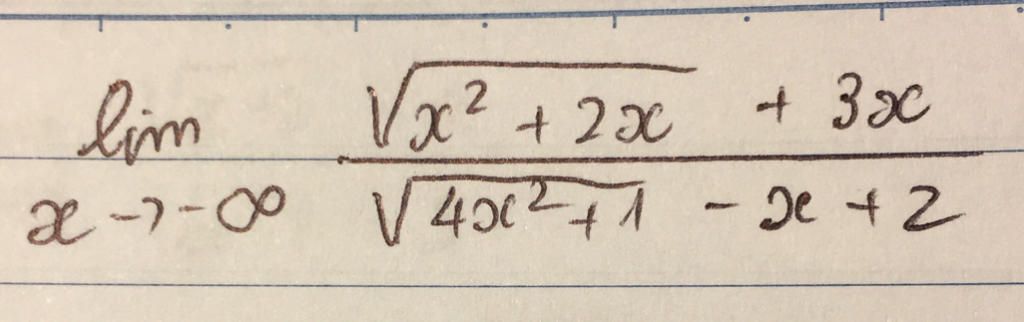 lim √(x² + 2x) + 3x
x → -∞ √(4x² + 1) - x + 2